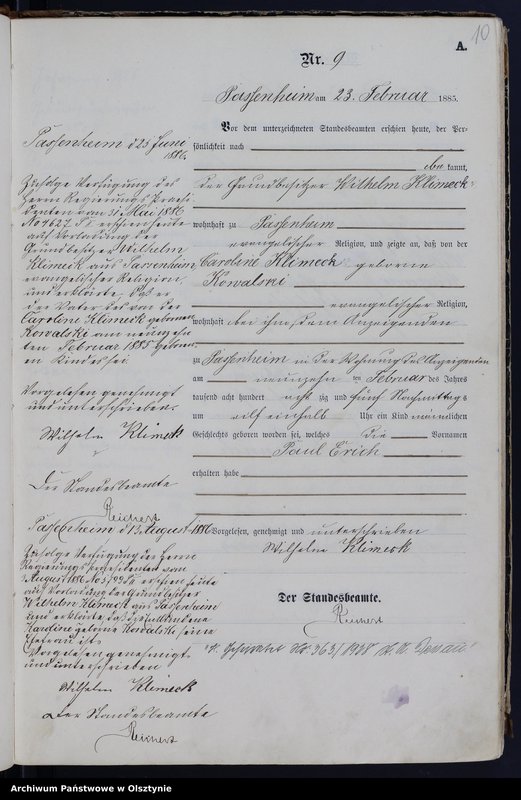 10
A.
Nr. 9
Passenheim am 23. Februar 1885.
Vor dem unterzeichneten Standesbeamten erschien heute, der Per-
sönlichkeit nach
kannt,
der Grundbesitzer Wilhelm Klimeck
wohnhaft zu Passenheim
evangelischer Religion, und zeigte an, daß von der
Caroline Klimeck geborene
Kowalski
evangelischer Religion,
wohnhaft bei ihm, dem Anzeigenden
zu Passenheim in der Wohnung des Anzeigenden
am neunzehn ten Februar des Jahrs
tausend acht hundert acht zig und fünf Nachmittags
um elf einhalb Uhr ein Kind männlichen
Geschlechts geboren worden sei, welches die Vornamen
Paul Erich
erhalten habe
Vorgelesen, genehmigt und unterschrieben
Wilhelm Klimeck
Der Standesbeamte.
Reichert
Geheiratet No. 363/1938
Passenheim d 25 Juni
1886.
Zufolge Verfügung des
Herrn Regierungs Praesi-
denten vom 31 Mai 1886
No 4627 erschien heute
auf Vorladung der
Grundbesitzer Wilhelm
Klimeck aus Passenheim
evangelischer Religion
und erklärte, daß er
der Vater des von der
Caroline Klimeck geborenen
Kowalski am neunzehn
ten Februar 1885 geboren
en Kindes sei
Vorgelesen genehmigt
und unterschrieben.
Wilhelm Klimeck
Der Standesbeamte
Reichert
Passenheim d 13 August 1886
Zufolge Verfügung des Herrn
Regierungspraesidenten vom
August 1886 erschien heute
auf Vorladung der Grundbesitzer
Wilhelm Klimeck aus Passenheim
und erklärte daß die
Caroline geborne Kowalski seine
Ehefrau ist.
Vorgelesen genehmigt
und unterschrieben
Wilhelm Klimeck
Der Standesbeamte
Reichert
Archiwum Państwowe w Olsztynie